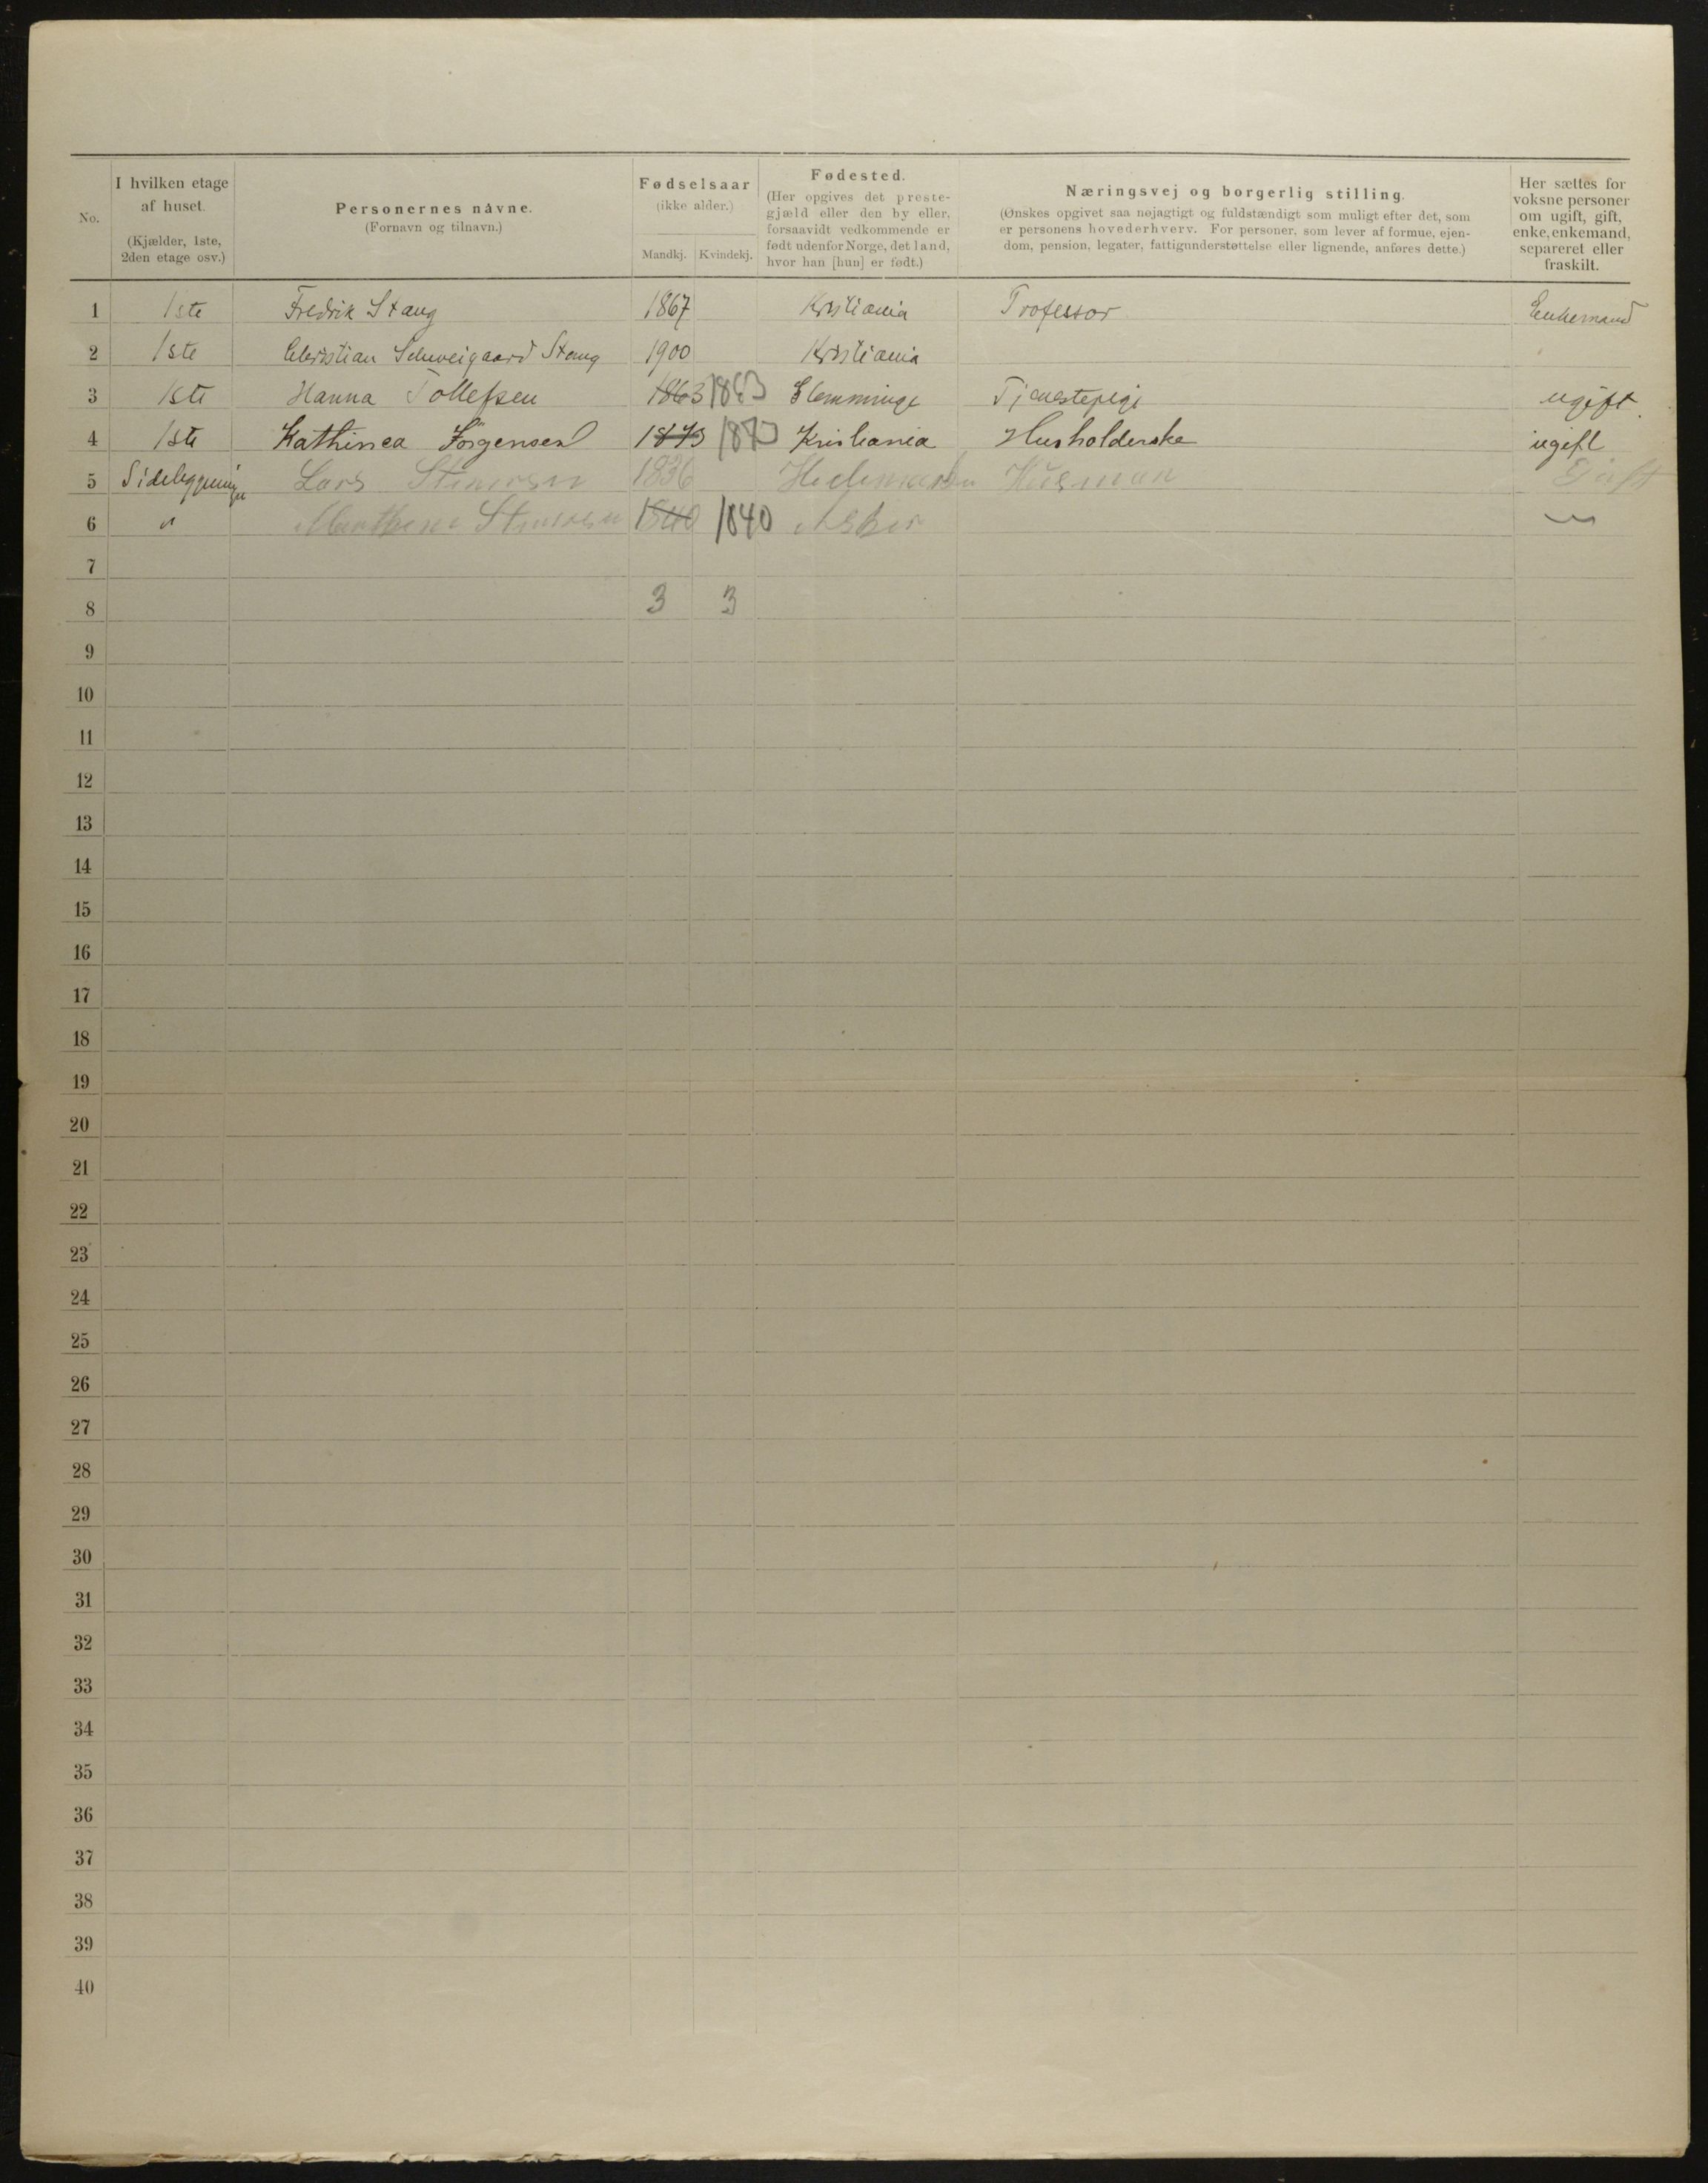 No.
I hvilken etage af huset. (Kjælder, 1ste, 2den etage osv.)
Personernes navne. (Fornavn og tilnavn.)
Fødselsaar (ikke alder.) Mandkj. Kvindekj.
Fødested. (Her opgives det prestegjæld eller den by eller, forsaavidt vedkommende er født udenfor Norge, det land, hvor han [hun] er født.)
Næringsvej og borgerlig stilling. (Ønskes opgivet saa nøjagtigt og fuldstændigt som muligt efter det, som er personens hovederhverv. For personer, som lever af formue, ejendom, pension, legater, fattigunderstøttelse eller lignende, anføres dette.)
Her sættes for voksne personer om ugift, gift, enke, enkemand, separeret eller fraskilt.
1 1ste Fredrik Stang 1867 Kristiania Professor Enkemand
2 1ste Christian Schweigaard Stang 1900 Kristiania
3 1ste Hanna Tollefsen 1863 1863 Glemminge Tjenestepige ugift.
4 1ste Kathinca Jörgensen 1873 1873 Kristiania Husholderske ugift
5 Sidebygningen Lars 1836 Gift
6 " 1840 1840 Asker "
7
8 3 3
9
10
11
12
13
14
15
16
17
18
19
20
21
22
23
24
25
26
27
28
29
30
31
32
33
34
35
36
37
38
39
40